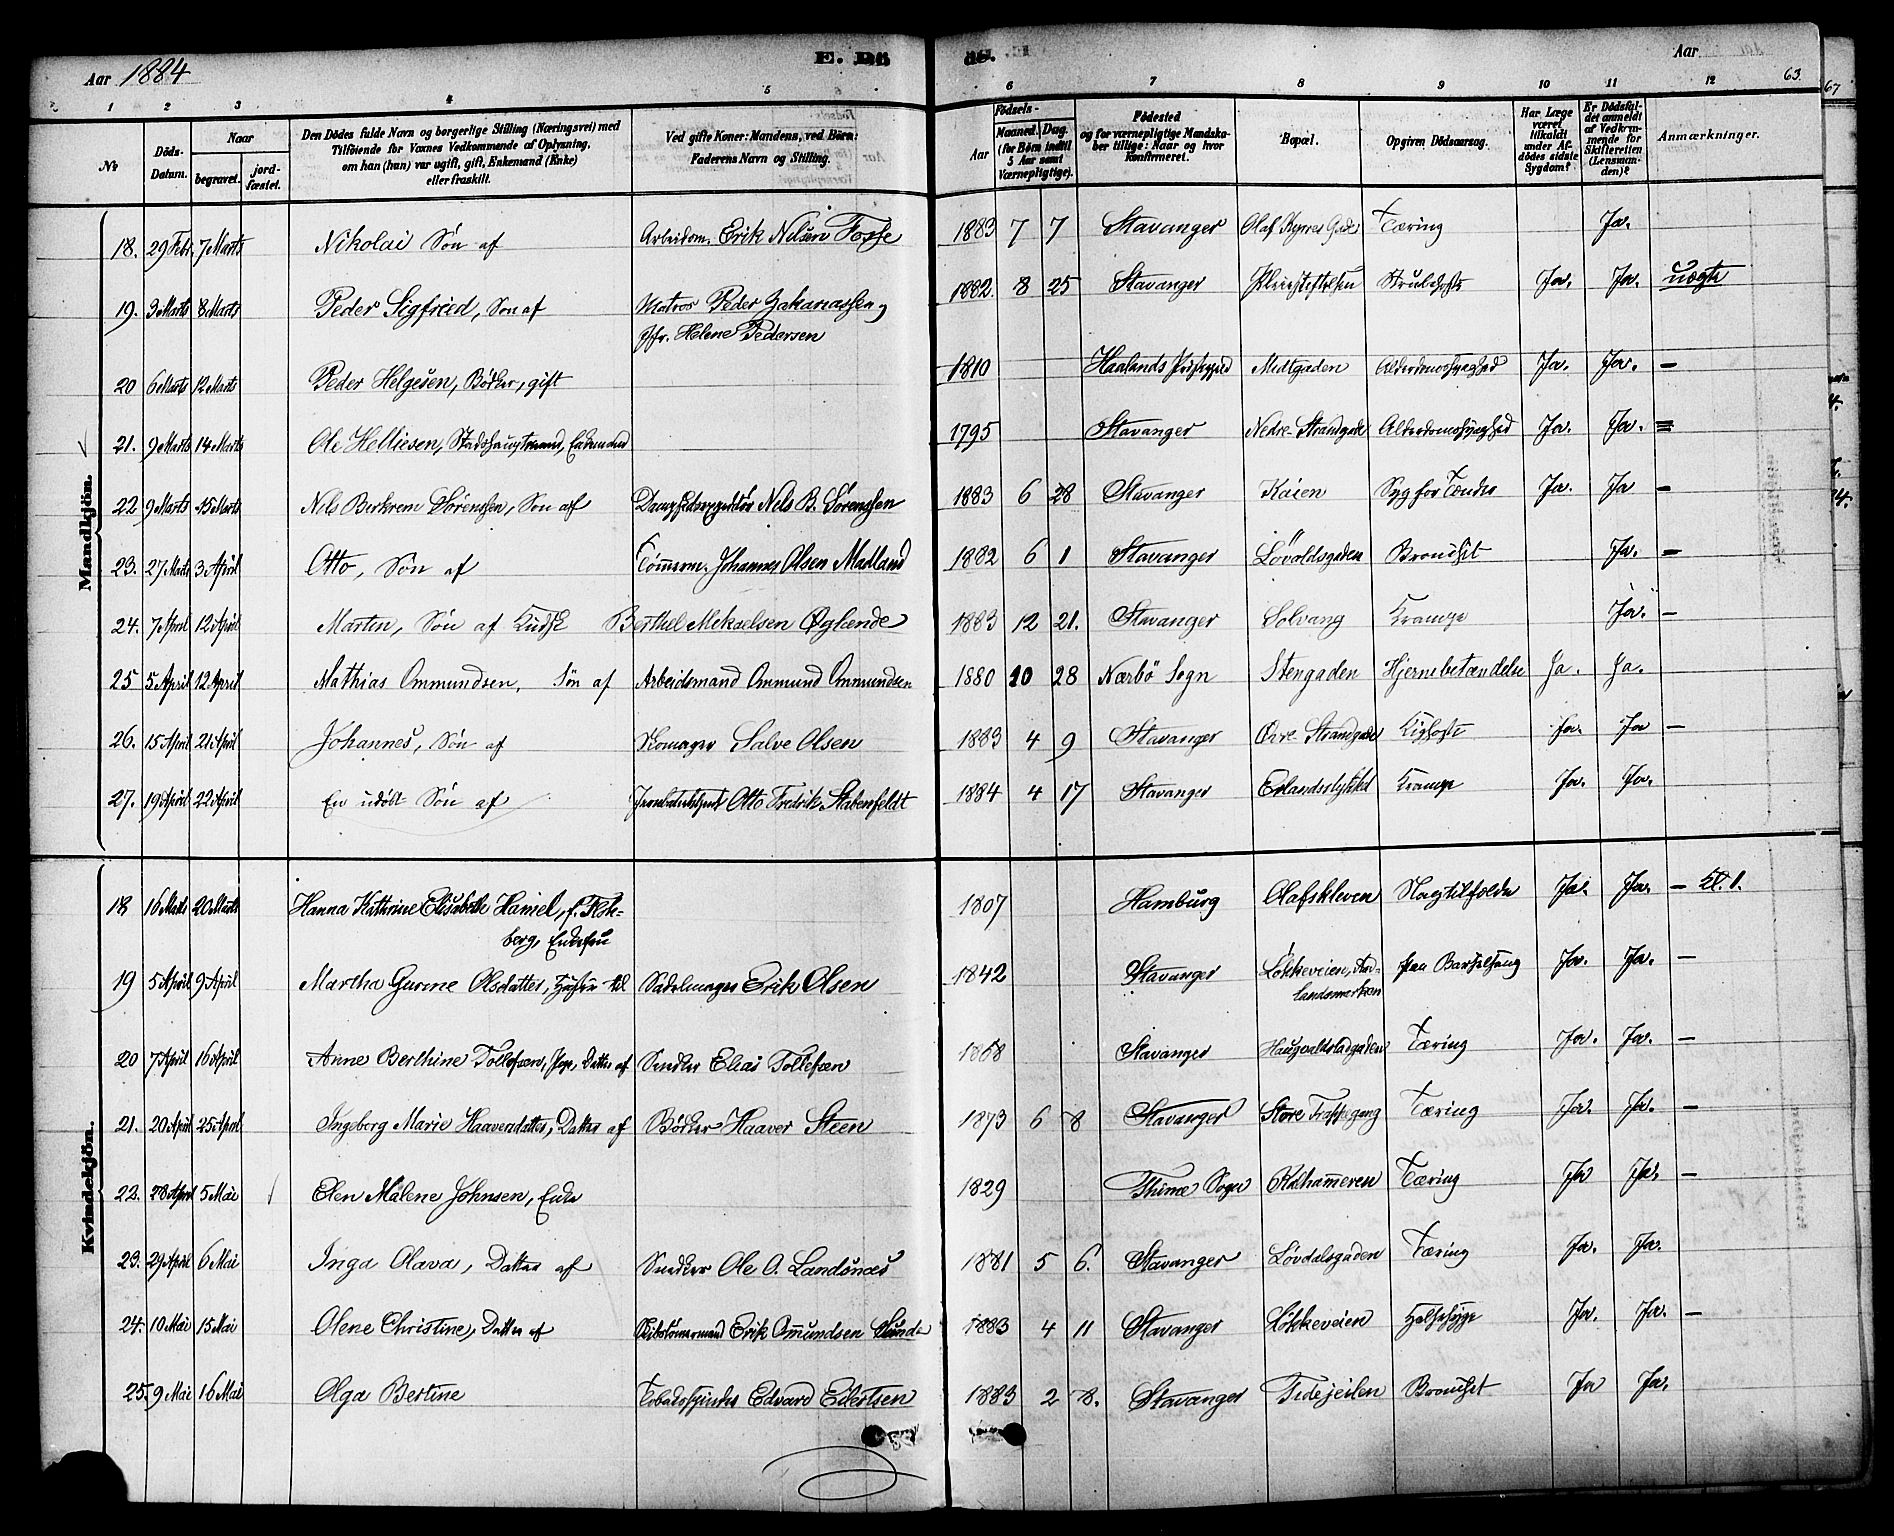 Aar 1884
E. Dö
de.
Aar
63.
67
1 2 3 4 5
6 7 8 9 10 11 12
№
Döds-
Datum.
Naar
begravet.
jord-
fæstet.
Den Dödes fulde Navn og borgerlige Stilling (Næringsvei) med
Tilföiende for Voxnes Vedkommende af Oplysning,
om han (hun) var ugift, gift, Enkemand (Enke)
eller fraskilt.
Ved gifte Koner: Mandens, ved Börn:
Faderens Navn og Stilling.
Födsels-
Aar
Maaned. Dag.
(for Börn indtil
5 Aar samt
Værnepligtige).
Födested
og for værnepligtige Mandska-
ber tillige: Naar og hvor
konfirmeret.
Bopæl.
Opgiven Dödsaarsag.
Har Læge
været
tilkaldt
under Af-
dödes sidste
Sygdom?
Er Dödsfal-
det anmeldt
af Vedkom-
mende for
Skifteretten
(Lensman-
den)?
Anmærkninger.
Mandkjön.
18. 29 Febr. 7 Marts Nikolai Søn af Arbeidsm. Erik Nilsen Fosse 1883 7 7 Stavanger Olaf Kyrres Gade Tæring Ja.
19. 3 Marts 8 Marts Peder Sigfried, Søn af Matros Peder Zakariassen, 1882. 8 25 Stavanger Strubehoste Ja. Ja. uægte
Helene Pedersen
20 6 Marts 12 Marts Peder Helgesen, Bødker, gift 1810 Haalands Midtgaden Alderdomssvaghed Ja. Ja. —
21. 9 Marts 14 Marts Ole Helliesen, Stadshauptmand, Enkemand 1795 Stavanger Nedre Strandgade Alderdomssvaghed Ja. Ja.
22 9 Marts 15 Marts Nils Berkrem Sørenssen, Søn af Nels B. Sørenssen 1883 6 28 Stavanger Kaien Syg for Tænder Ja. Ja —
23. 27 Marts 3 April Otto, Søn af Tømmerm. Johannes Olsen Madland 1882 6 1 Stavanger Løvoldsgaden Bronchit Ja. —
24. 7 April 12 April Martin, Søn af Kudsk Berthel Mikaelsen Øglænde 1883 12 21. Stavanger Solvang Krampe Ja. —
25 5 April 12 April Mathias Ommundsen, Søn af Arbeidsmand Ommund Ommundsen 1880 10 28 Nærbö Sogn Stengaden Hjernebetændelse Ja. Ja.
26. 15 April 21 April Johannes, Søn af Skomager Salve Olsen 1883 4 9 Stavanger Øvre Strandgade Kighoste Ja. Ja —
27. 19 April 22 April En udöbt Søn af Otto Fredrik Stabenfeldt 1884 4 17 Stavanger Erlandsstykket Krampe Ja. Ja.
Kvindekjön.
18 16 Marts 20 Marts Hanna Kathrine Elisabeth Haniel, f. 1807 Hamburg Olafskleven Slagtilfælde Ja. Ja. — Kl. 1.
berg, Enkefru
19 5 April 9 April Martha Gurine Olsdatter, Hustru til Sadelmager Erik Olsen 1842 Stavanger Løkkeveien, paa Barselseng Ja. Ja. —
landsmarken
20 7 April 16 April Anne Berthine Tollefsen, Datter af Snedker Elias Tollefsen 1868 Stavanger Haugvaldstadgaden Tæring Ja. Ja. —
21. 20 April 25 April Ingeborg Marie Haaversdatter, Datter af Bødker Haaver Steen 1873 6 8 Stavanger Store Trappegang Tæring Ja. Ja. —
22. 28 April 5 Mai Elen Malene Johnsen, Enke 1829 Thime Sogn Kolhammeren Tæring Ja Ja. —
23. 29 April 6 Mai Inga Olava, Datter af Snedker Ole O. Landsnæs 1881 5 6. Stavanger Løvdalsgaden Tæring Ja. Ja.
24. 10 Mai 15 Mai Olene Christine, Datter af Skibstømmermand Erik Ommundsen Sunde 1883 4 11 Stavanger Løkkeveien Halssyge Ja. Ja. —
25. 9 Mai 16 Mai Olga Bertine Tobaksspinder Edvard Edertsen 1883 2 8. Stavanger Bronchit Ja Ja.